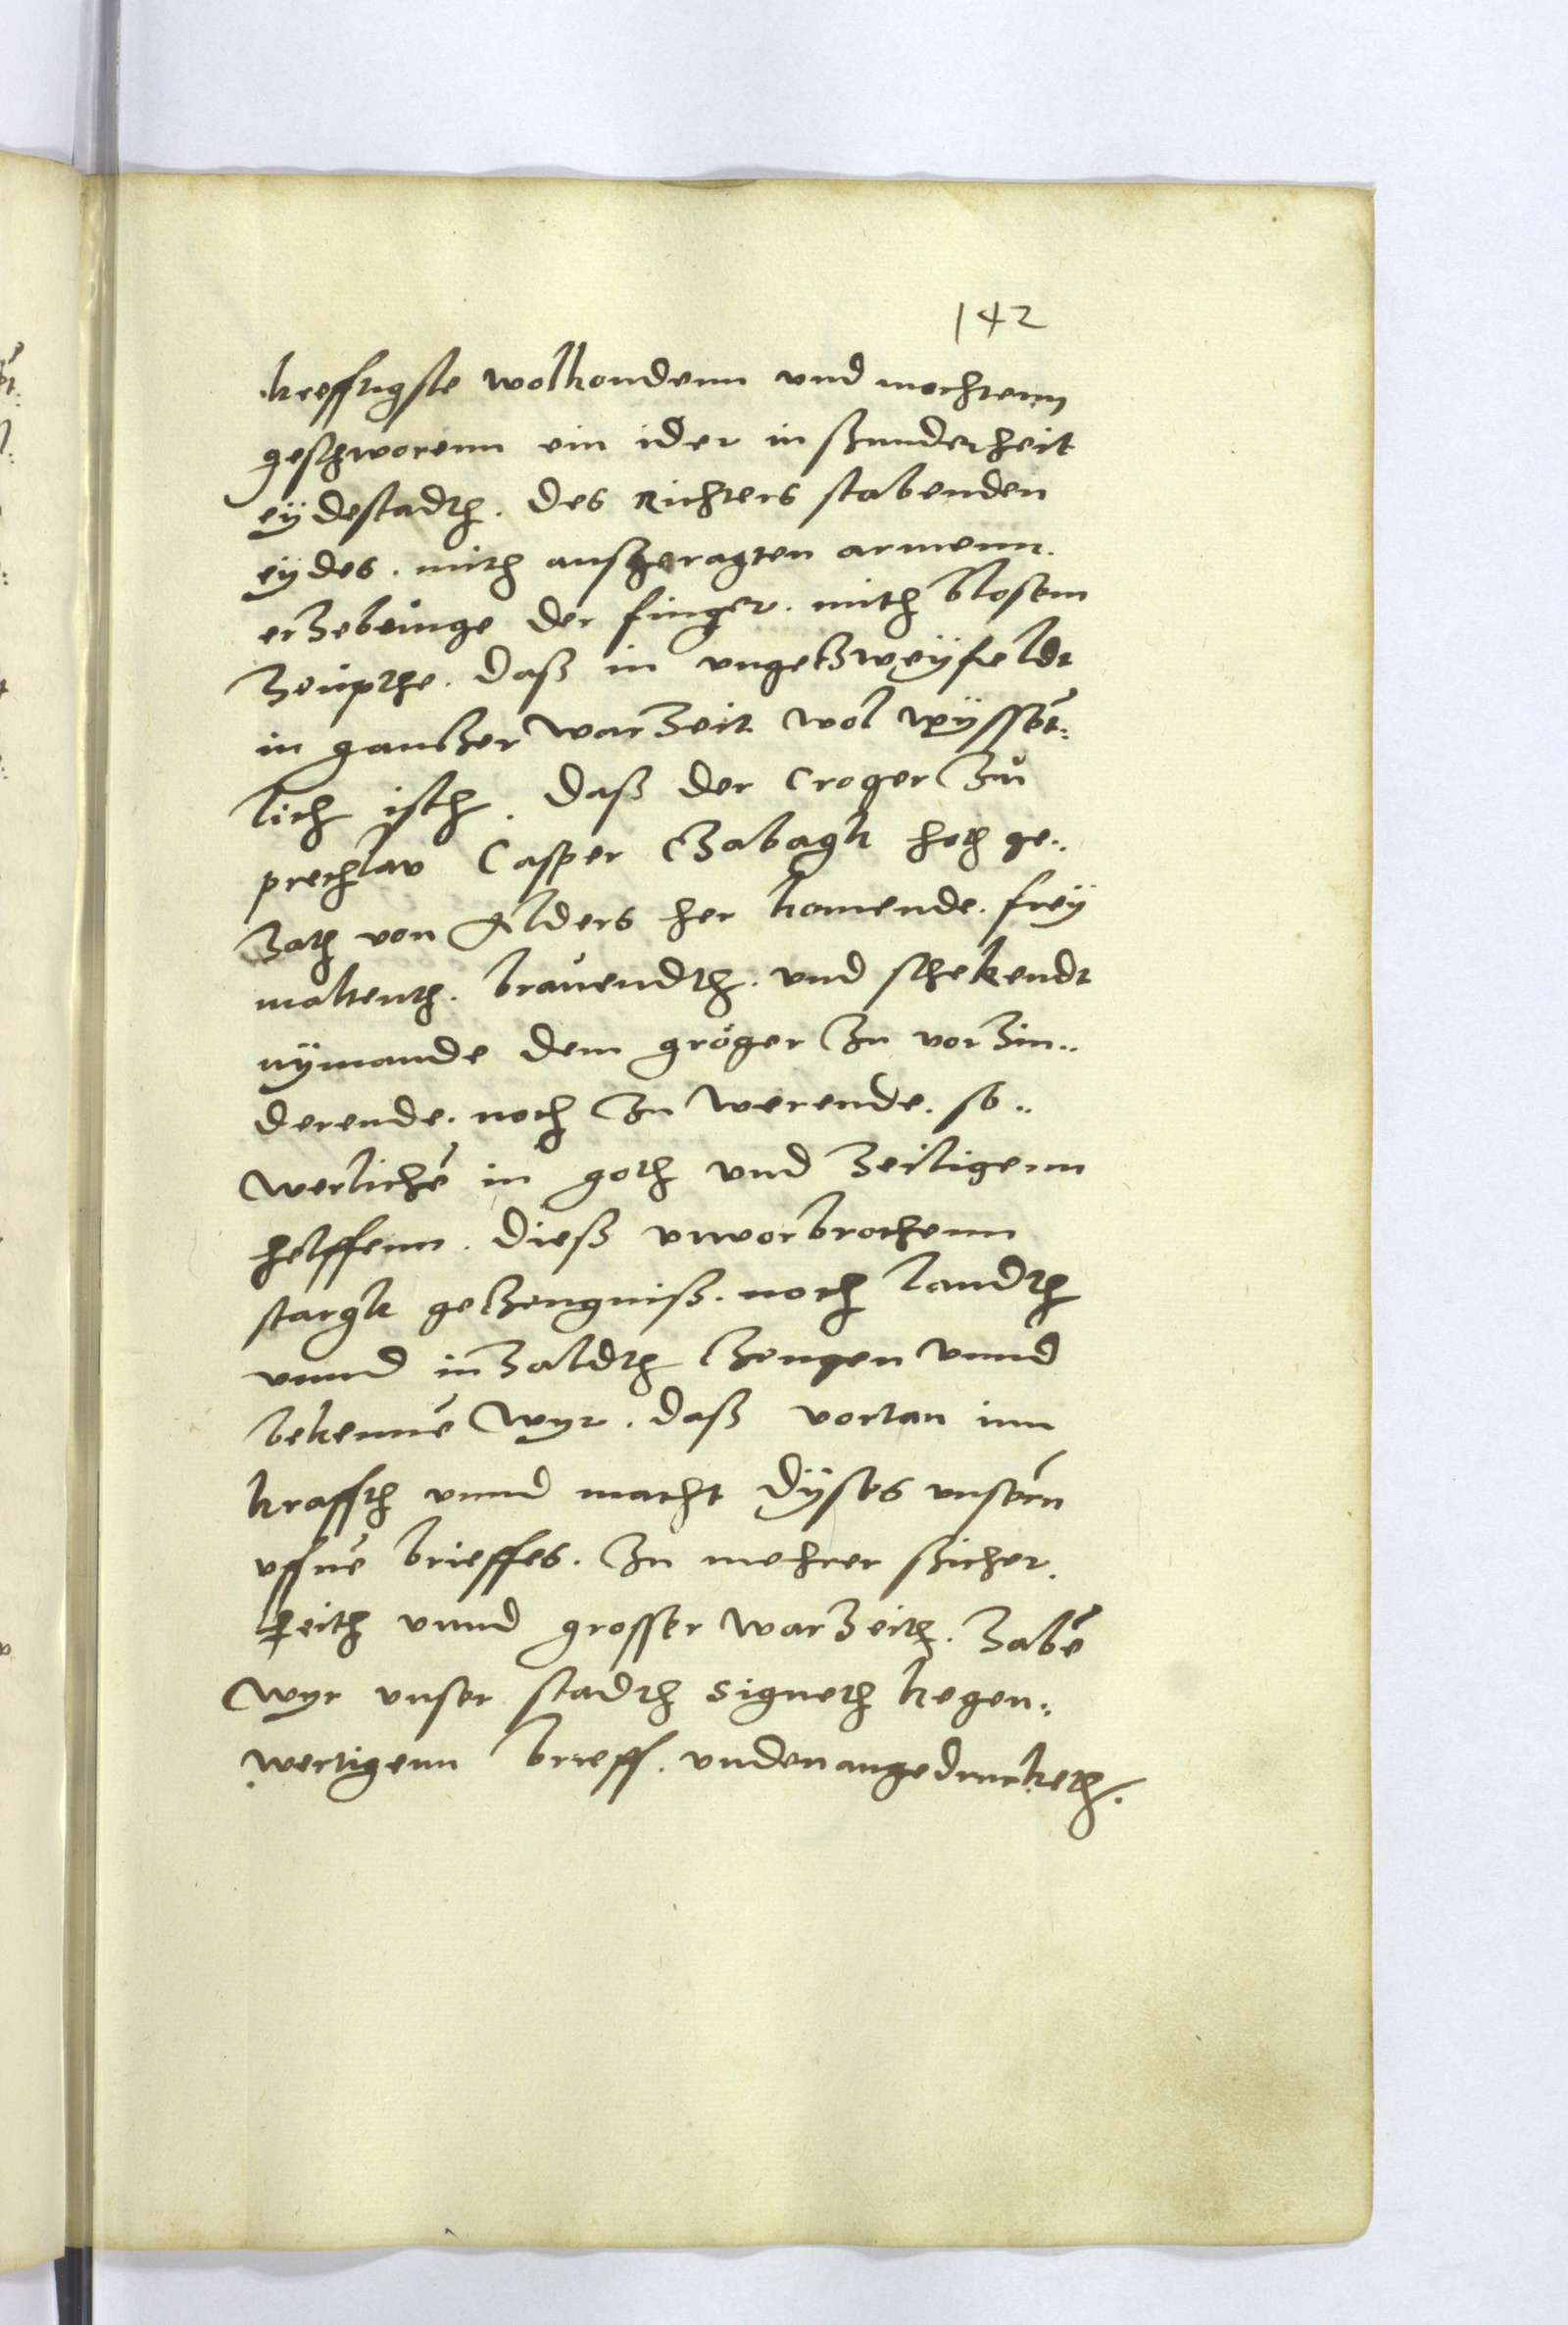 142
krefftigste wolkondenn vnd mochtenn
geschworenn ein ider in ßunderheit
eÿdestadth. des Richters stabenden
eÿdes. mith außgeragten armenn.
erhebunge der finger. mith blosem
heupthe. daß in vngetzweÿfeldt
in gantzer warheit wol wÿssët:
lich isth. daß der Croger zu
prechlav Casper Czabagk hoth ge..
hath von Alders her komende. freÿ
maltenth. brauendth. vnd schekendt
nÿmande dem gröger zu vorhin..
derende. noch zu werende. so..
werlichē in goth vnd heiligenn
helffenn. dieß vnvorbrochenn
stargk getzeugniß. noch landth
vnnd inhaldth tzeugen vnnd
bekennē wyr. daß vortan inn
kraffth vnnd macht dÿses vnsern
vffnē brieffes. zu mehrer ßicher.
heith vnnd grosser warheith. habē
wyr vnser stadth signeth kegen..
wertigenn brieff. vndenangedrucketh.